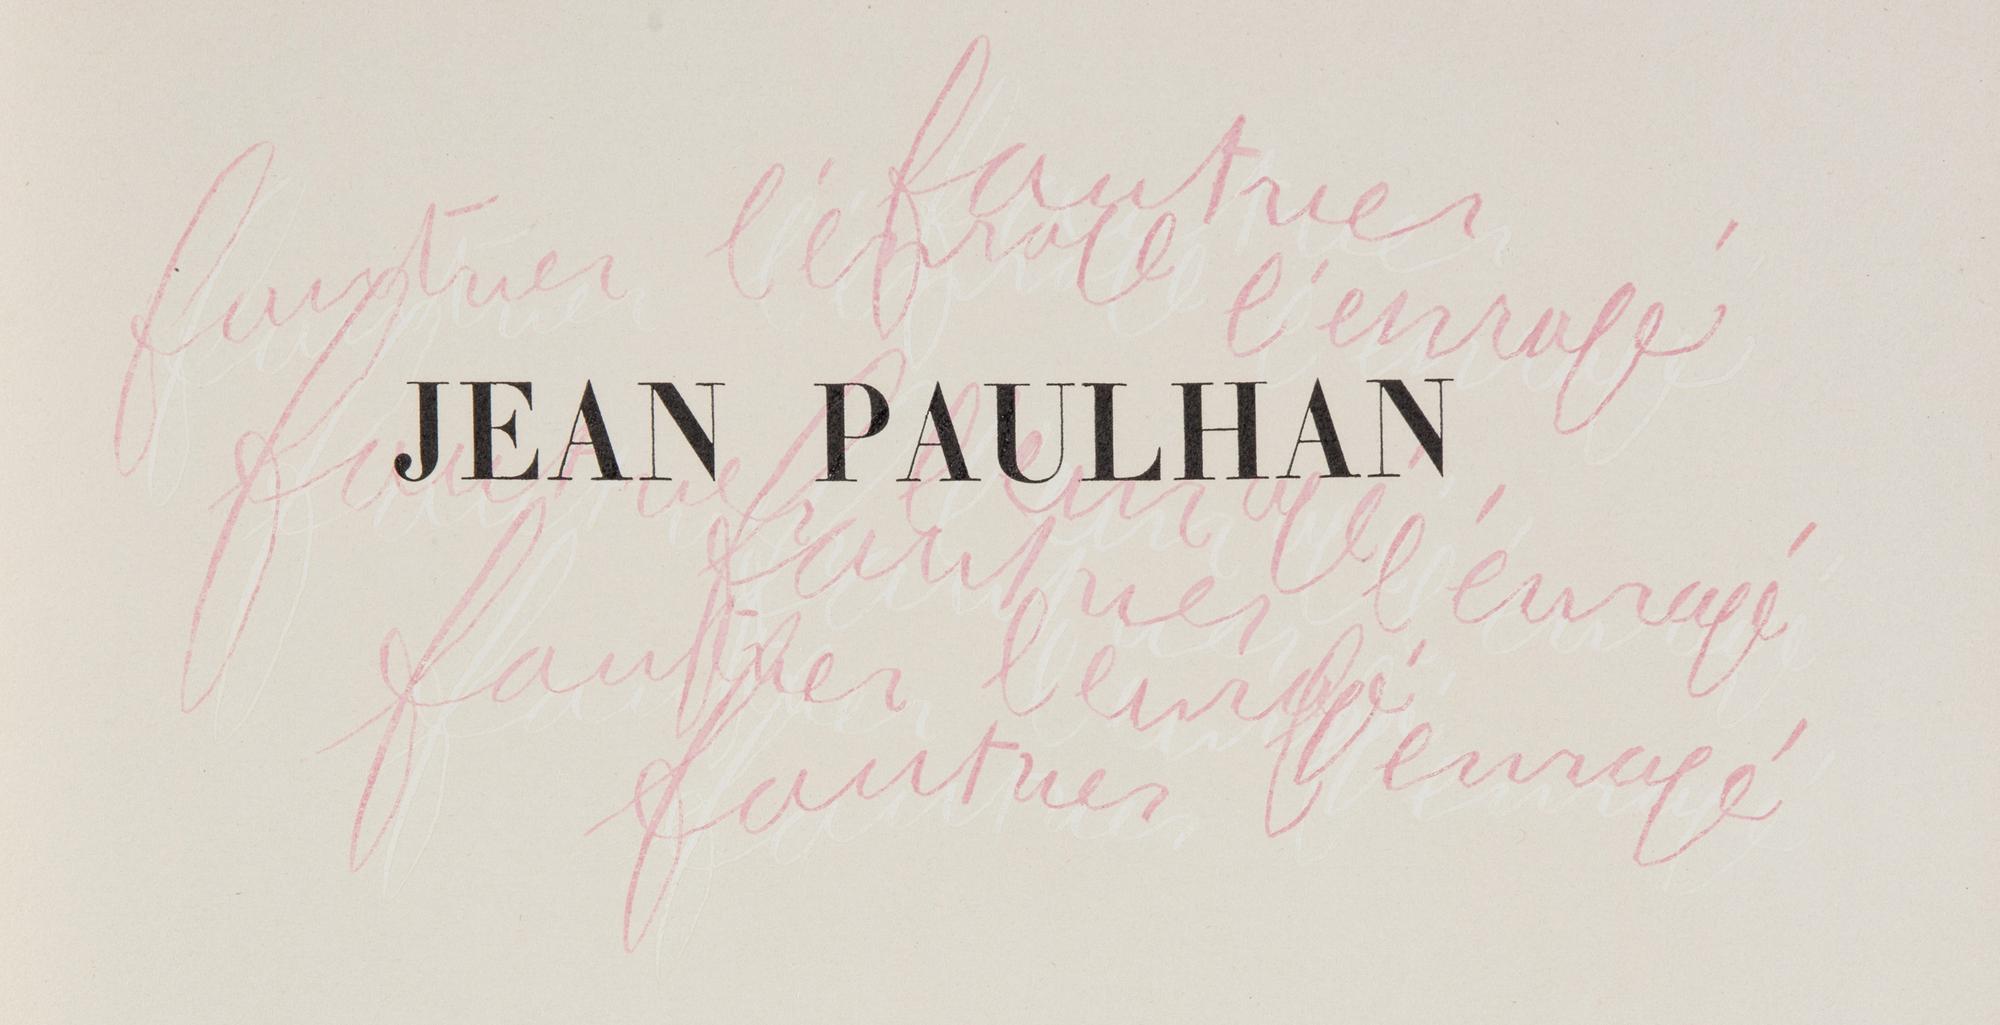 fautrier l'enragé
fautrier l'enragé
JEAN PAULHAN
fautrier l'enragé
fautrier l'enragé
fautrier l'enragé
fautrier l'enragé